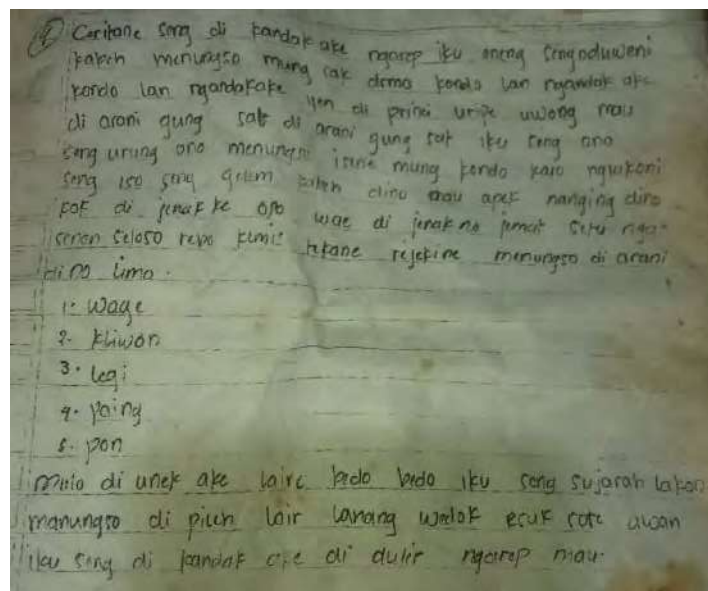 4 Ceritane seng di kandak ake ngarep iku oneng seng oduweni
kakeh menungso mung sak demo kondo lan ngandak ake
kondo lan ngandakake yen di princi uripe uwong mau
di arani gung sak di arani gung sak iku seng ono
seng urung ono menungso isine mung kondo karo nglakoni
seng iso seng gelem kabeh dino mau apek nanging dino
kok di jenakke opo wae di jenakno jemat setu
senen seloso rebo kemis tekane rejekine menungso di arani
dino limo.
1. wage
2. kliwon
3. legi
4. paing
5. pon
mulo di unek ake laire bedo bedo iku seng sujarah lakon
manungso di pileh lair lanang wedok esuk sore awan
iku seng di kandak ake di dulir ngarep mau.